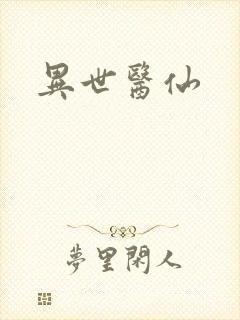 異世醫仙
夢里閑人